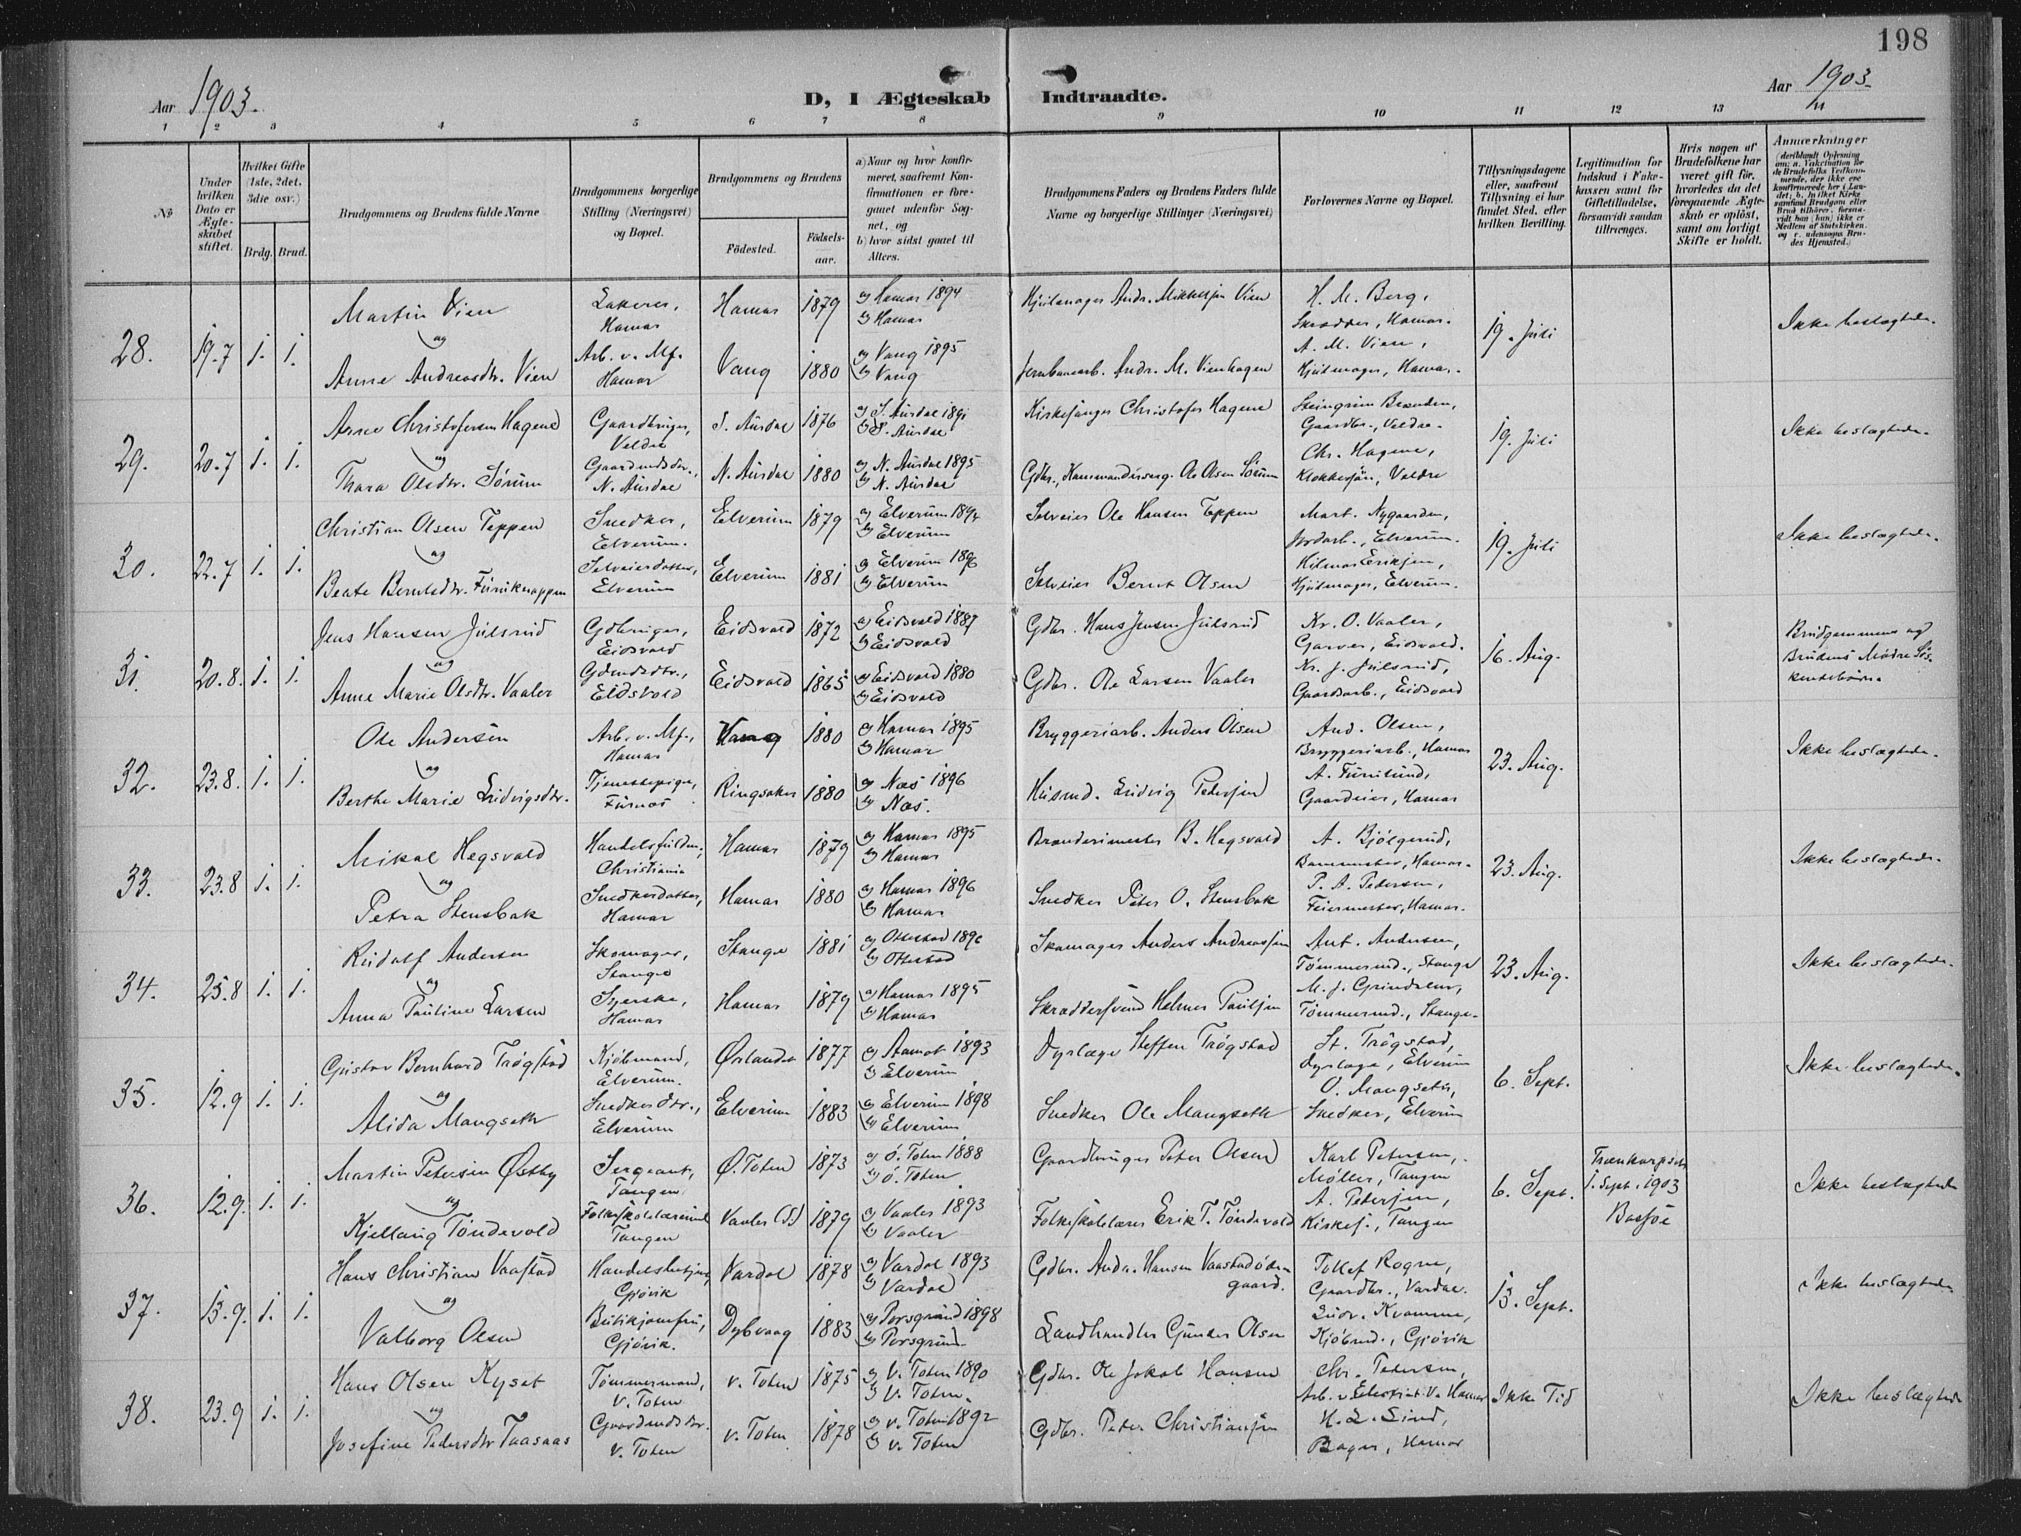 198
Aar 1903.
D, I Ægteskab Indtraadte.
Aar 1903.
1 2 3 4 5 6 7 8 9 10 11 12 13 14
No
Under hvilken Dato er Ægteskabet stiftet.
Hvilket Gifte (1ste, 2det, 3die osv.)
Brdg. Brud.
Brudgommens og Brudens fulde Navne
Brudgommens borgerlige Stilling (Næringsvei) og Bopæl.
Brudgommens og Brudens
Fødested.
Fødselsaar.
a) Naar og hvor konfirmeret, saafremt Konfirmationen er foregaaet udenfor Sognet, og
b) hvor sidst gaaet til Alters.
Brudgommens Faders og Brudens Faders fulde Navne og borgerlige Stillinger (Næringsvei)
Forlovernes Navne og Bopæl.
Tillysningsdagene eller, saafremt Tillysning ei har fundet Sted, efter hvilken Bevilling.
Legitimation for Indskud i Enkekassen samt for Giftetilladelse, forsaavidt saadan tiltrænges.
Hvis nogen af Brudefolkene har været gift før, hvorledes da det foregaaende Ægteskab er opløst, samt om lovligt Skifte er holdt.
Anmærkninger
28. 19.7 1. 1. Martin Vien Hamar Hamar 1879 a) Hamar 1894 b) Hamar Hjulmager Andr. Mikkelsen Vien H. M. Berg, Skrædder, Hamar. 19. Juli Ikke beslægtede.
og
Anne Andreasdtr. Vien Arb. v. Mf. Hamar Vang 1880 a) Vang 1895 b) Vang Jernbanearb. Andr. M. Vienhagen A. M. Vien, Hjulmager, Hamar.
29. 20.7 1. 1. Arne Christofersen Hagene Gaardbruger, Veldre S. Aurdal 1876 a) S. Aurdal 1891 b) S. Aurdal Kirkesanger Christofer Hagene Gaardbr., Veldre 19. Juli Ikke beslægtede.
og
Thora Olsdtr. Sørum Gaardmdsdtr., N. Aurdal N. Aurdal 1880 a) N. Aurdal 1895 b) N. Aurdal Ole Olsen Sørum Chr. Hagene, Veldre
30. 22.7 1. 1. Christian Olsen Teppen Snedker, Elverum. Elverum 1879 a) Elverum 1894 b) Elverum Selveier Ole Hansen Teppen Mart. Nygaarden, Jordarb., Elverum. 19. Juli Ikke beslægtede.
og
Beate Berntsdtr. Furuknappen Selveierdatter, Elverum Elverum 1881 a) Elverum 1896 b) Elverum Selveier Bernt Olsen Hilmar Eriksen, Hjulmager, Elverum.
31. 20.8. 1. 1. Jens Hansen Julsrud Gdbruger, Eidsvold Eidsvold 1872 a) Eidsvold 1887 b) Eidsvold Gdbr. Hans Jensen Julsrud Kr. O. Vaaler, Garver, Eidsvold. 16. Aug. Brudgommens og Brudens Mødre Søskendebørn.
og
Anne Marie Olsdtr. Vaaler Gdmdsdtr., Eidsvold Eidsvold 1865 a) Eidsvold 1880 b) Eidsvold Gdbr. Ole Larsen Vaaler Kr. J. Julsrud, Gaardarb., Eidsvold
32. 23.8. 1. 1. Ole Andersen Arb. v. Mf., Hamar Vang 1880 a) Hamar 1895 b) Hamar Bryggeriarb. Anders Olsen And. Olsen, Bryggeriarb., Hamar 23. Aug. Ikke beslægtede.
og
Berthe Marie Ludvigsdtr. Tjenestepige, Furnes Ringsaker 1880 a) Næs 1896 b) Næs. Husmd. Ludvig Pedersen A. Furulund, Gaardeier, Hamar
33. 23.8 1. 1. Mikal Hegsvold Handelsfuldm., Christiania Hamar 1879 a) Hamar 1895 b) Hamar B. Hegsvold A. Bjølgerud, Hamar. 23. Aug. Ikke beslægtede.
og
Petra Stensbak Snedkerdatter, Hamar Hamar 1880 a) Hamar 1896 b) Hamar Snedker Peter O. Stensbak P. A. Pedersen, Feiermester, Hamar.
34. 25.8 1. 1. Rudolf Andersen Skomager, Stange Stange 1881 a) Ottestad 1896 b) Ottestad Skomager Anders Andreassen Ant. Andersen, Tømmermd., Stange 23. Aug. Ikke beslægtede.
og
Anna Pauline Larsen Syerske, Hamar Hamar 1879 a) Hamar 1895 b) Hamar Skræddersvend Helmer Paulsen M. J. Grindalen, Tømmermd., Stange.
35. 12.9 1. 1. Gustav Bernhard Trøgstad Kjøbmand, Elverum. Ørlandet 1877 a) Aamot 1893 b) Elverum Dyrlæge Steffen Trøgstad St. Trøgstad, Dyrlæge, Elverum 6. Sept. Ikke beslægtede.
og
Alida Mangseth Snedkerdtr., Elverum Elverum 1883 a) Elverum 1898 b) Elverum Snedker Ole Mangseth O. Mangseth, Snedker, Elverum
36. 12.9. 1. 1. Martin Petersen Østby Sergeant, Tangen Ø. Toten 1873 a) Ø. Toten 1888 b) Ø. Toten. Gaardbruger Peter Olsen Karl Petersen, Møller, Tangen 6. Sept. 1. Sept. 1903 Ikke beslægtede
og
Kjellaug Tøndevold Folkeskolelærerinde Tangen Vaaler (S.) 1879 a) Vaaler 1893 b) Vaaler Folkeskolelærer Erik T. Tøndevold A. Petersen, Kirkes., Tangen
37. 13.9. 1. 1. Hans Christian Vaastad Handelsbetjent, Gjøvik Vardal 1878 a) Vardal 1893 b) Vardal Gdbr. Andr. Hansen Vaastadødegaard. Tollef Rogne, Gaardbr., Vardal. 13. Sept. Ikke beslægtede
og
Valborg Olsen Butikjomfru, Gjøvik. Dybvaag 1883 a) Porsgrund 1898 b) Porsgrund Landhandler Gunder Olsen Ludv. Kvamme, Kjøbmd., Gjøvik
38. 23.9 1. 1. Hans Olsen Kyset Tømmermand, V. Toten V. Toten 1875 a) V. Toten 1890 b) V. Toten. Gdbr. Ole Jakob Hansen Chr. Petersen, Hamar Ikke Tid Ikke beslægtede
og
Josefine Pedersdtr Taasaas Gaardmdsdtr. V. Toten V. Toten 1878 a) V. Toten 1892 b) V. Toten Gdbr. Peter Christiansen H. L. Lind, Bager, Hamar